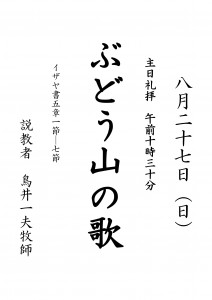 八月二十七日（日）
主日礼拝　午前十時三十分
ぶどう山の歌
イザヤ書五章一節―七節
説教者　鳥井一夫牧師